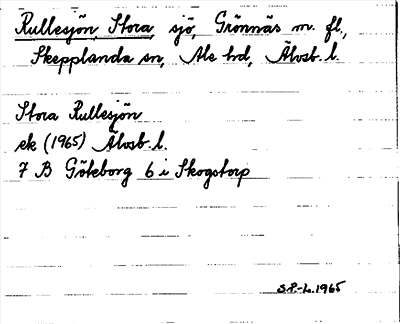 Rullesjön Stora, sjö, Grönnäs m. fl.,
Skepplanda sn, Ale hd, Älvsb. l.
Stora Rullesjön
ek (1965) Älvsb. l.
7 B Göteborg 6 i Skogstorp
S.P.-L. 1965